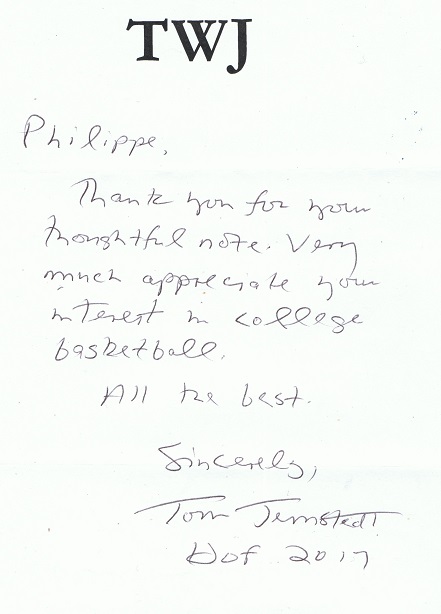 TWJ
Philippe,
Thank you for your
thoughtful note. Very
much appreciate your
interest in college
basketball.
All the best.
Sincerely,
Tom Jernstedt
HoF 2017